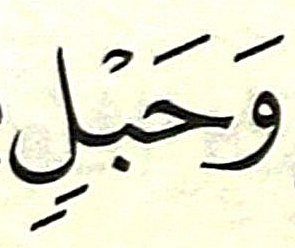 وَحَبْلٍ